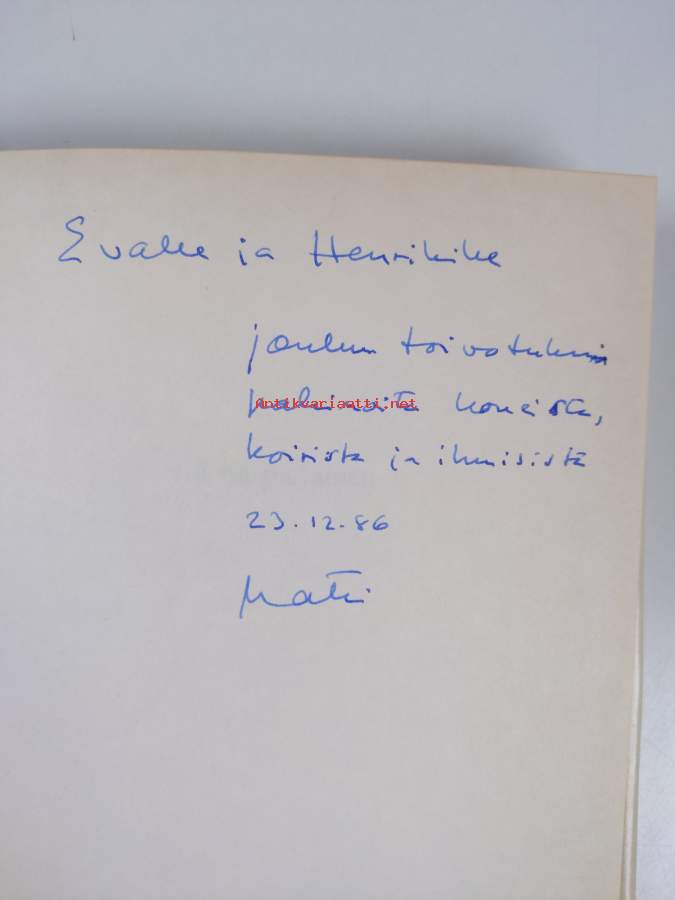 Evalle ja Henrikille
joulun toivotuksin
pakinoita koneista,
Antikvariaatti.net
koirista ja ihmisistä
23.12.86
Matti